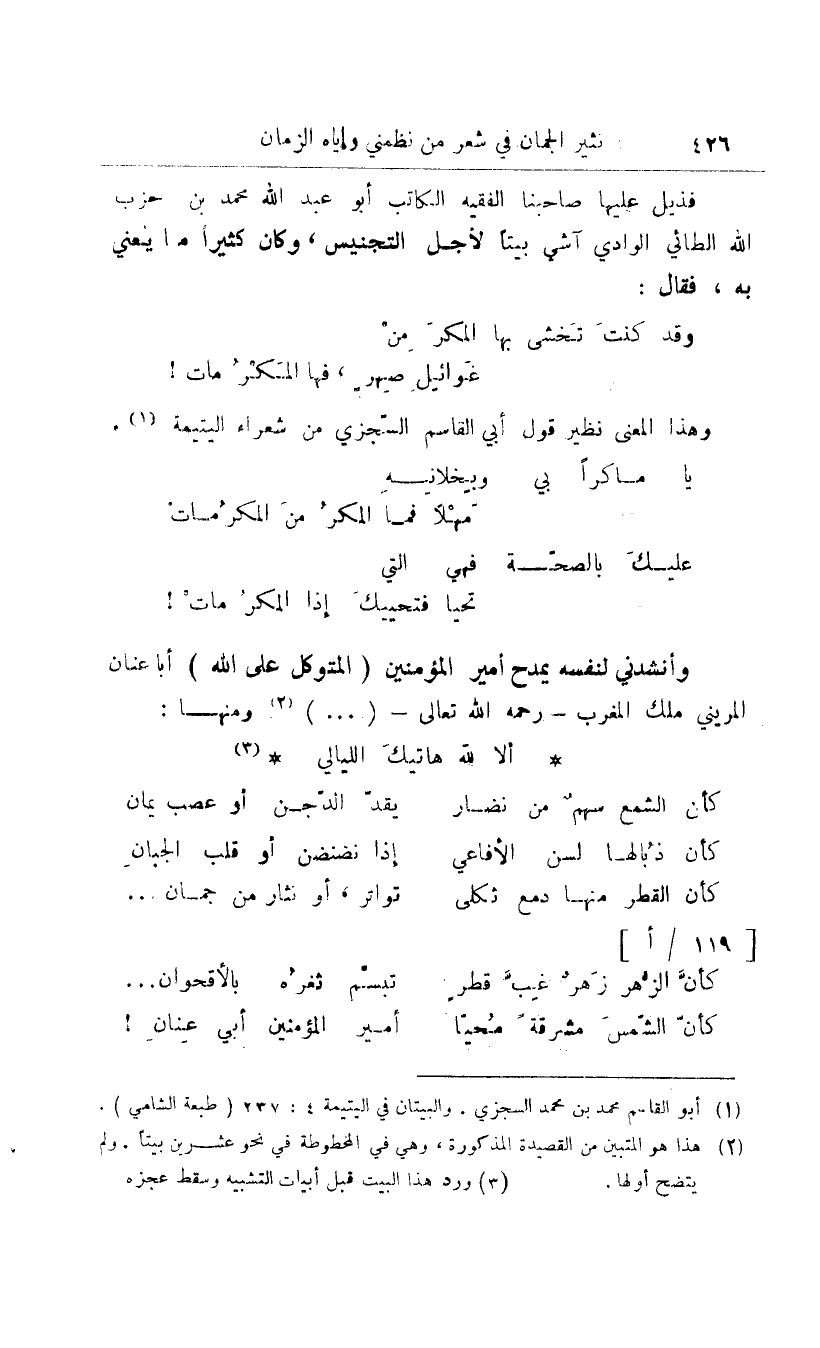 ٤٢٦ نثير الجمان في شعر من نظمني وإياه الزمان
فذيل عليها صاحبنا الفقيه الكاتب أبو عبد الله محمد بن حزب
الله الطائي الوادي آشي بيتاً لأجل التجنيس ، وكان كثيراً ما يُعني
به ، فقال :
وقد كنتَ تَخشى بها المكرَ مِنْ
غَوائيلِ صِهرٍ ، فها المَكْرُ مات !
وهذا المعنى نظير قول أبي القاسم السِّجزي من شعراء اليتيمة (١) .
يا ماكراً بي وبِخلانِهِ
مَهْلاً فما المكرُ منَ المكرُماتْ
عليكَ بالصحّة فهي التي
تحيا فتحييكَ إذا المكرُ ماتْ !
وأنشدني لنفسه يمدح أمير المؤمنين ( المتوكل على الله ) أبا عنان
المريني ملك المغرب – رحمه الله تعالى – ( ... ) (٢) ومنها :
* ألا لله هاتيكَ الليالي * (٣)
كأن الشمع سهمٌ من نضار يقدّ الدّجن أو عصب يمان
كأن ذُبالها لسن الأفاعي إذا نضنضن أو قلب الجبانِ
كأن القطر منها دمع ثكلى تواتر ، أو نثار من جمان ...
[ ١١٩ / أ ]
كأنَّ الزهْر زَهرٌ غِبَّ قطرٍ تبسّم ثغرُه بالأقحوان...
كأنّ الشّمسَ مشرقةً مُحيّا أمير المؤمنين أبي عِنانِ !
(١) أبو القاسم محمد بن محمد السجزي . والبيتان في اليتيمة ٤ : ٢٣٧ ( طبعة الشامي ) .
(٢) هذا هو المتبين من القصيدة المذكورة ، وهي في المخطوطة في نحو عشرين بيتاً . ولم
يتضح أولها . (٣) ورد هذا البيت قبل أبيات التشبيه وسقط عجزه